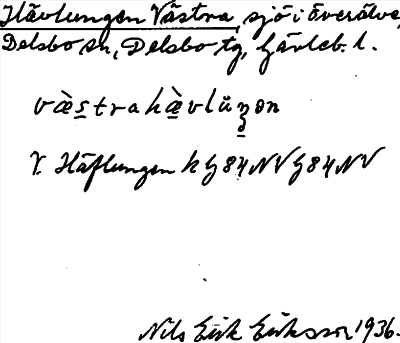 Hävlungen Västra, sjö i överälve,
Delsbo sn, Delsbo tg, Gävleb. l.
væ̀s̲trahæ̲̀vlūŋ̲ən
V. Häflungen k G 84 NV G 84 NV
Nils Erik Eriksson 1936.